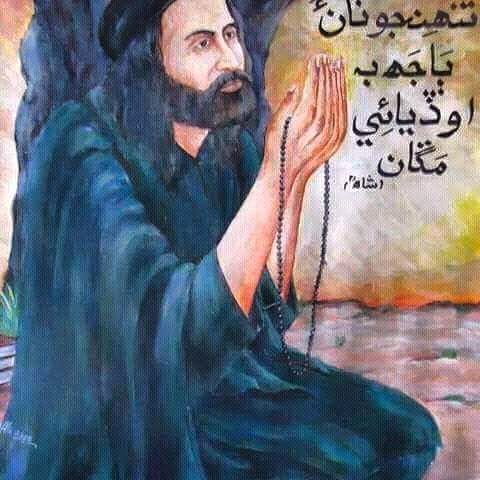 تنھن جو نانءُ
ٻاجھ بہ
اوڏيائي
مڱان
(شاھ رح)